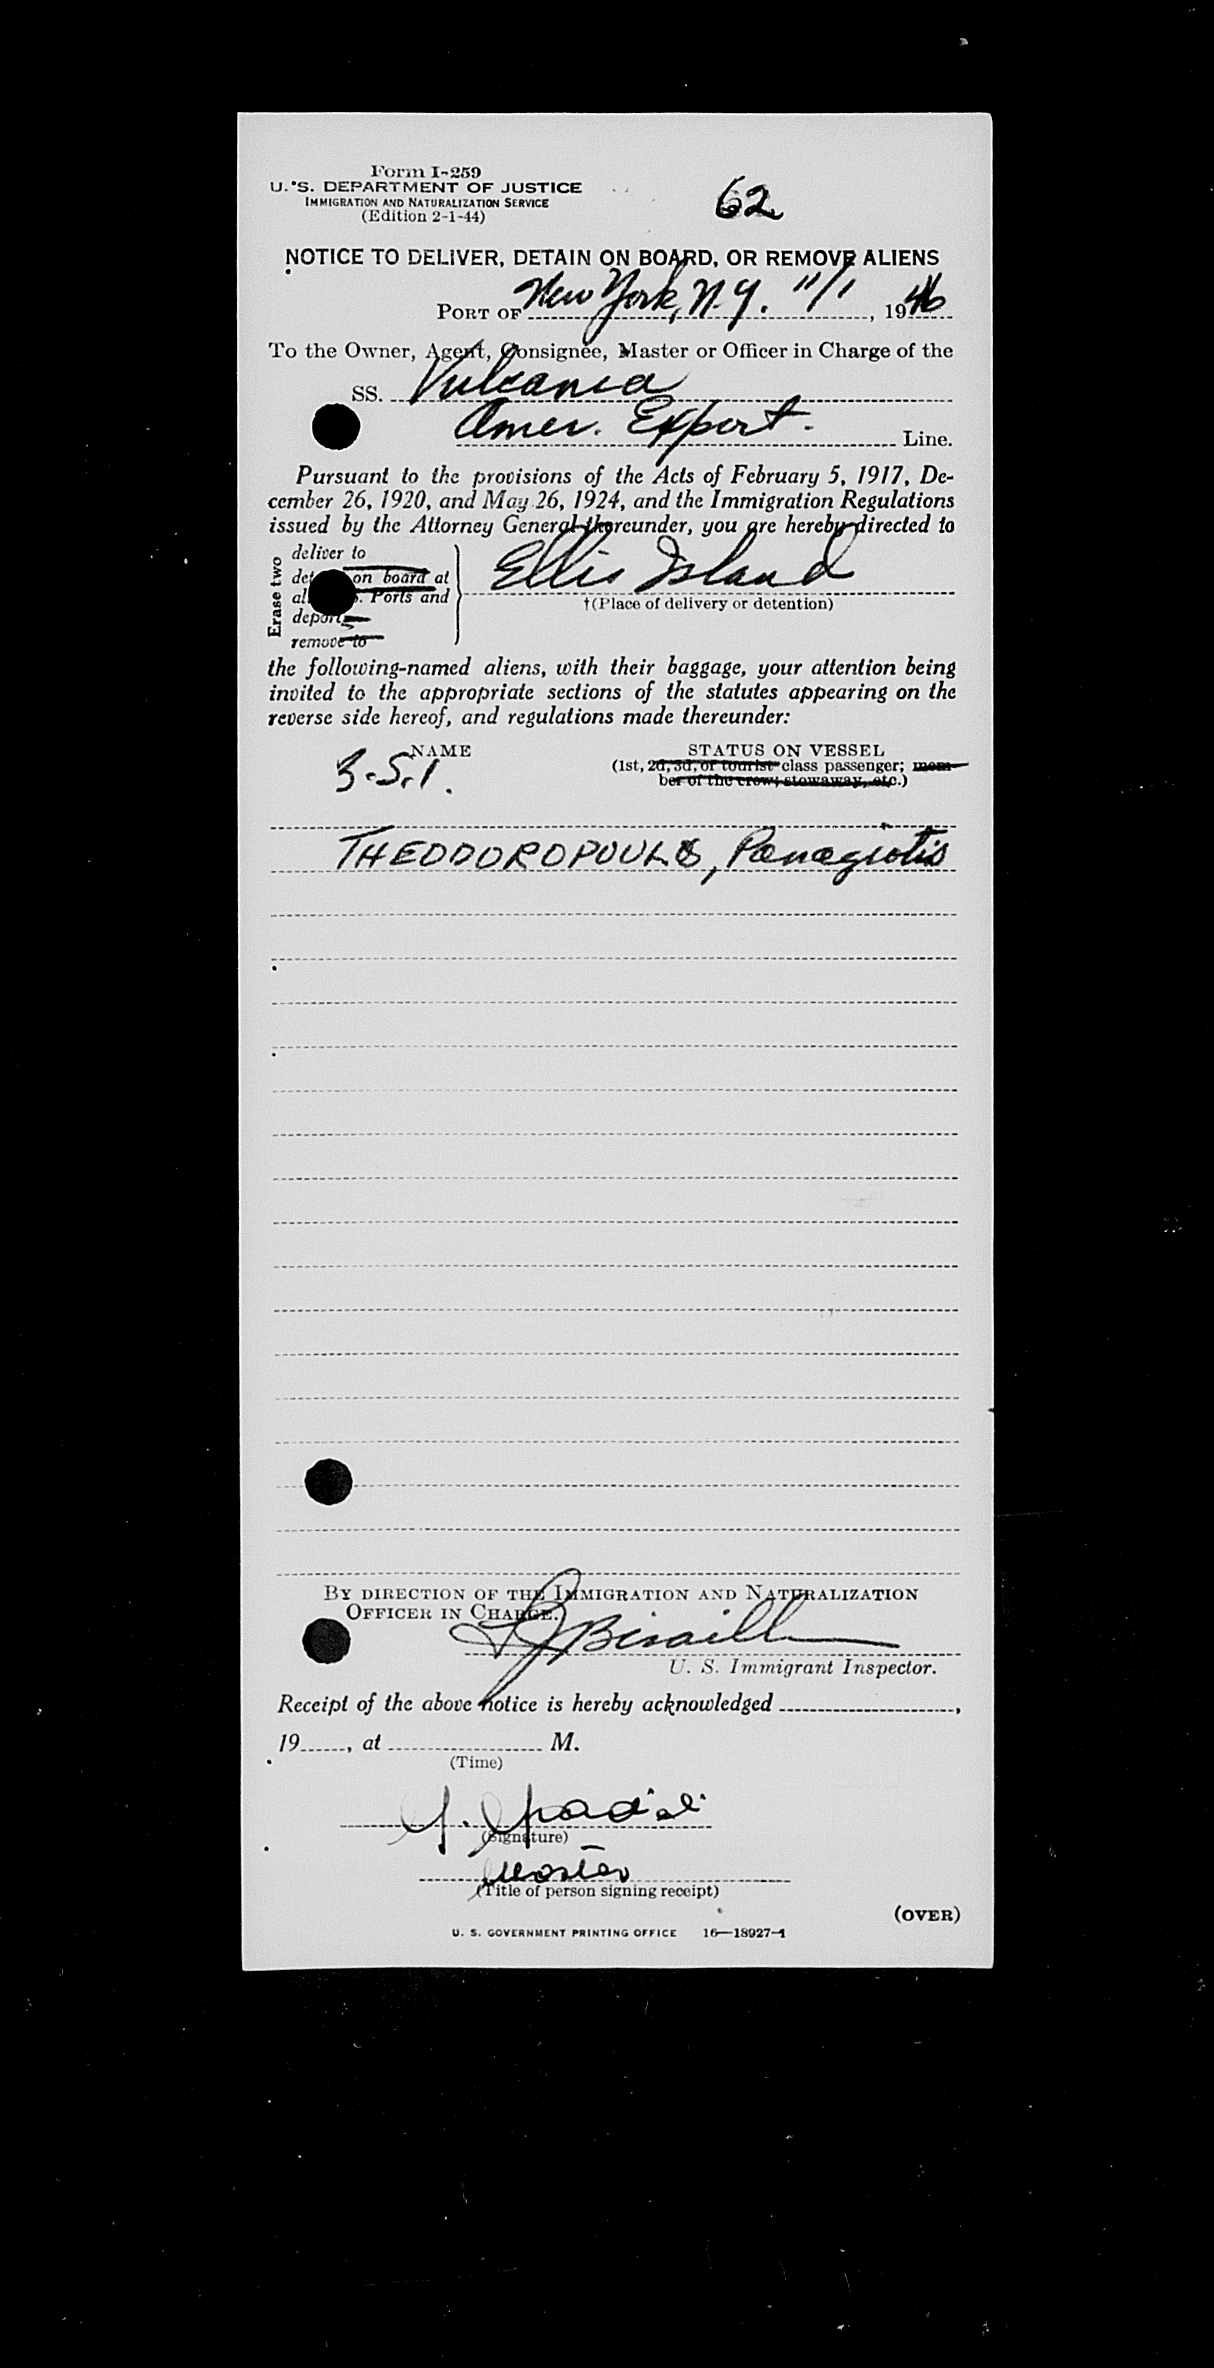 Form I-259
U. S. DEPARTMENT OF JUSTICE
IMMIGRATION AND NATURALIZATION SERVICE
(Edition 2-1-44)
62
NOTICE TO DELIVER, DETAIN ON BOARD, OR REMOVE ALIENS
PORT OF New York, N.Y. 11/1, 1946
To the Owner, Agent, Consignee, Master or Officer in Charge of the
SS. Vulcania
Amer. Export. Line.
Pursuant to the provisions of the Acts of February 5, 1917, De-
cember 26, 1920, and May 26, 1924, and the Immigration Regulations
issued by the Attorney General thereunder, you are hereby directed to
Erase two
deliver to
on board at
Ports and
deport
remove to
Ellis Island
†(Place of delivery or detention)
the following-named aliens, with their baggage, your attention being
invited to the appropriate sections of the statutes appearing on the
reverse side hereof, and regulations made thereunder:
NAME STATUS ON VESSEL
(1st, 2d, 3d, or tourist class passenger; mem-
ber of the crew; stowaway, etc.)
THEODOROPOULOS, Panagiotis
BY DIRECTION OF THE IMMIGRATION AND NATURALIZATION
OFFICER IN CHARGE.
U. S. Immigrant Inspector.
Receipt of the above notice is hereby acknowledged ,
19 , at M.
(Time)
(Signature)
Master
(Title of person signing receipt)
(OVER)
U. S. GOVERNMENT PRINTING OFFICE 16—18927-1